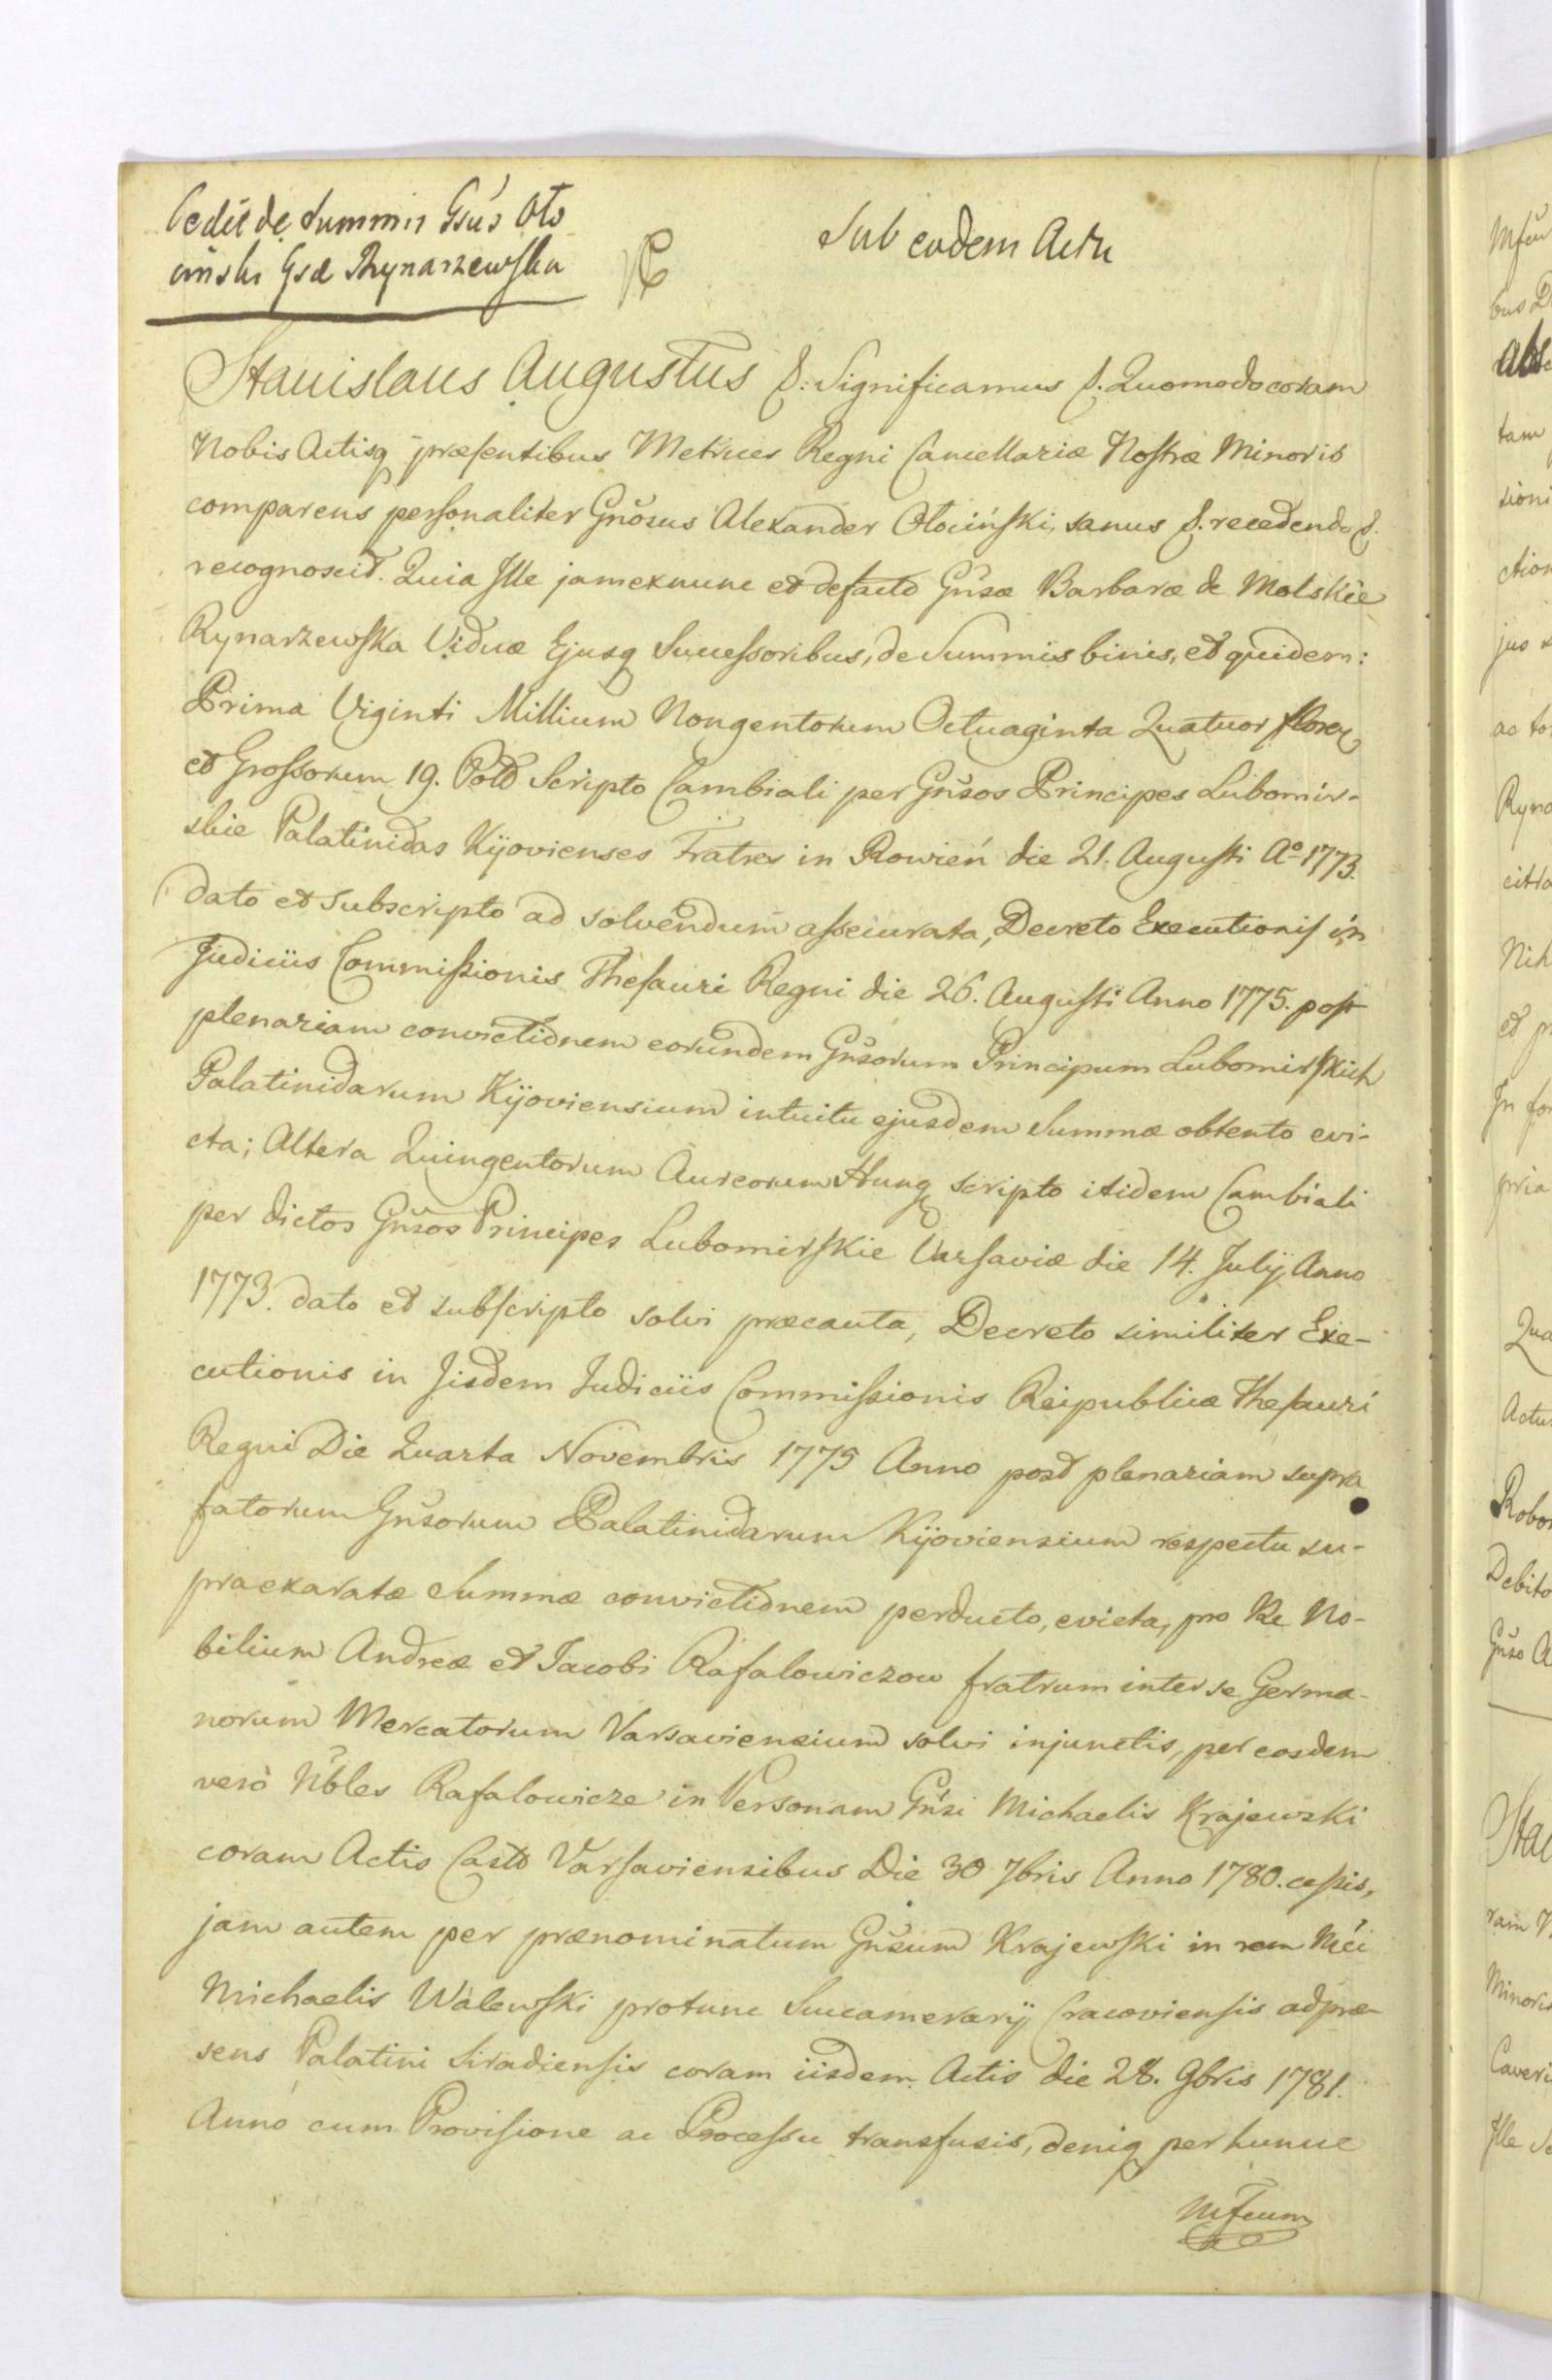 Cedit de Summis Gsus Oto
ciński Gsæ Rynarzewska
Sub eodem Actu
Stanislaus Augustus &: Significamus &. Quomodo coram
Nobis Actisq præsentibus Metrices Regni Cancellariæ Nostræ Minoris
comparens personaliter Gnosus Alexander Otociński, sanus &. recedendo &.
recognoscit. Quia Ille jam exnunc et defacto Gnsæ Barbaræ de Molskie
Rynarzewska Viduæ Ejusq Successoribus, de Summis binis, et quidem:
Prima Viginti Millium Nongentorum Octuaginta Quatuor floren
et Grossorum 19. Polo Scripto Cambiali per Gnsos Principes Lubomir-
skie Palatinidas Kijovienses Fratres in Rowień die 21. Augusti Aº 1773.
dato et subscripto ad solvendum assecurata, Decreto Executionis in
Judiciis Commissionis Thesauri Regni die 26. Augusti Anno 1775. post
plenariam convictionem eorundem Gnsorum Principum Lubomirskich
Palatinidarum Kijoviensium intuitu ejusdem Summæ obtento evi-
cta; Altera Quingentorum Aureorum Hung scripto itidem Cambiali
per dictos Gnsos Principes Lubomirskie Varsaviæ die 14. Julij Anno
1773. dato et subscripto solvi præcauta, Decreto similiter Exe-
cutionis in Iisdem Judiciis Commissionis Reipublicæ Thesauri
Regni Die Quarta Novembris 1775 Anno post plenariam supra
fatorum Gnsorum Palatinidarum Kijoviensium respectu su-
praexaratæ Summæ convictionem perducto, evicta, pro Re No-
bilium Andreæ et Jacobi Rafalowiczow fratrum inter se Germa-
norum Mercatorum Varsaviensium solvi injunctis, per eosdem
verò Nbles Rafalowicze in Personam Gnsi Michaelis Krajewski
coram Actis Castr Varsaviensibus Die 30 7bris Anno 1780. cessis,
jam autem per prænominatum Gnsum Krajewski in rem Mci
Michaelis Walewski protunc Succamerarij Cracoviensis ad præ-
sens Palatini Siradiensis coram iisdem Actis die 28. 9bris 1781.
Anno cum Provisione ac Processu transfusis, deniq per hunce
Mfcum